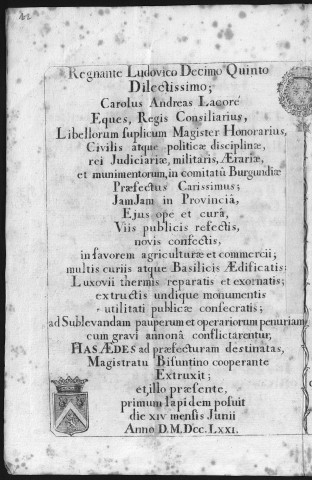 Regnante Ludovico Decimo Quinto
Dilectissimo;
Carolus Andreas Lacoré
Eques, Regis Consiliarius,
Libellorum suplicum Magister Honorarius,
Civilis atque politicæ disciplinæ,
rei Judiciariæ, militaris, Ærariæ,
et munimentorum, in comitatû Burgundiæ
Præfectus Carissimus;
JamJam in Provinciâ,
Ejus ope et curâ,
Viis publicis refectis,
novis confectis,
in favorem agriculturæ et commercii;
multis curiis atque Basilicis Ædificatis:
Luxovii thermis reparatis et exornatis;
extructis undique monumentis
utilitati publicæ consecratis;
ad Sublevandam pauperum et operariorum penuriam
cum gravi annonâ conflictarentur,
HAS ÆDES ad præfecturam destinatas,
Magistratu Bisuntino cooperante
Extruxit;
et, illo præsente,
primum lapidem posuit
die XIV mensis Junii
Anno D.M.Dcc.LXXI.